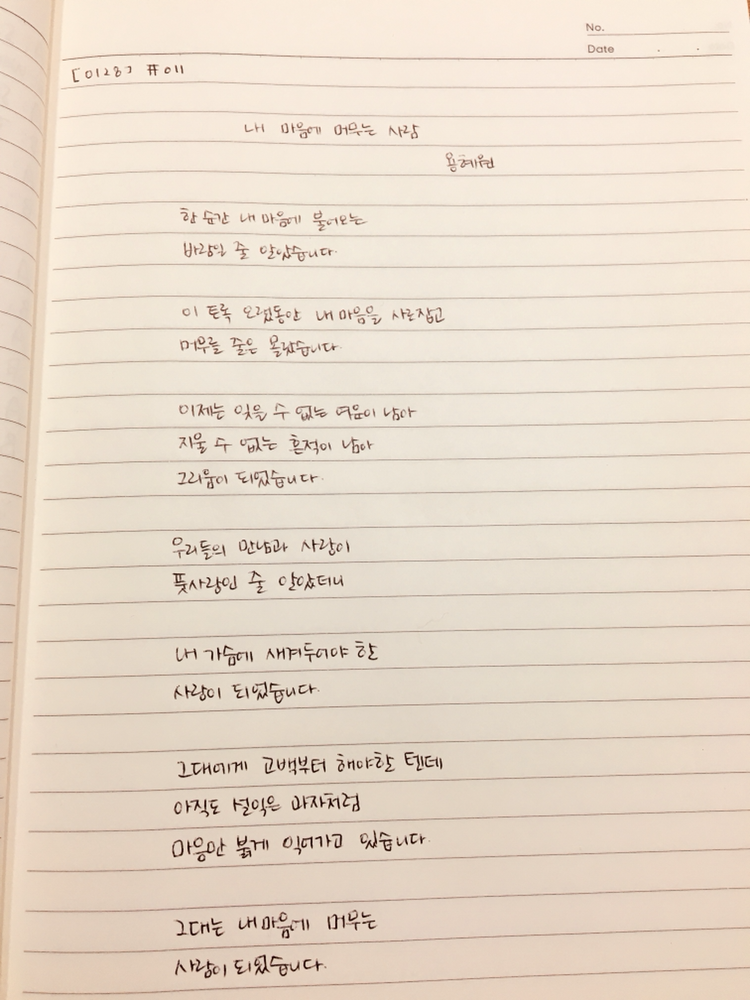 No.
Date . .
[0128] #011
내 마음에 머무는 사람
용혜원
한 순간 내 마음에 불어오는
바람일 줄 알았습니다.
이 토록 오랬동안 내 마음을 사로잡고
머무를 줄은 몰랐습니다.
이제는 잊을 수 없는 여운이 남아
지울 수 없는 흔적이 남아
그리움이 되었습니다.
우리들의 만남과 사랑이
풋사랑인 줄 알았더니
내 가슴에 새겨두어야 할
사랑이 되었습니다.
그대에게 고백부터 해야할 텐데
아직도 설익은 과자처럼
마음만 붉게 익어가고 있습니다.
그대는 내 마음에 머무는
사람이 되었습니다.